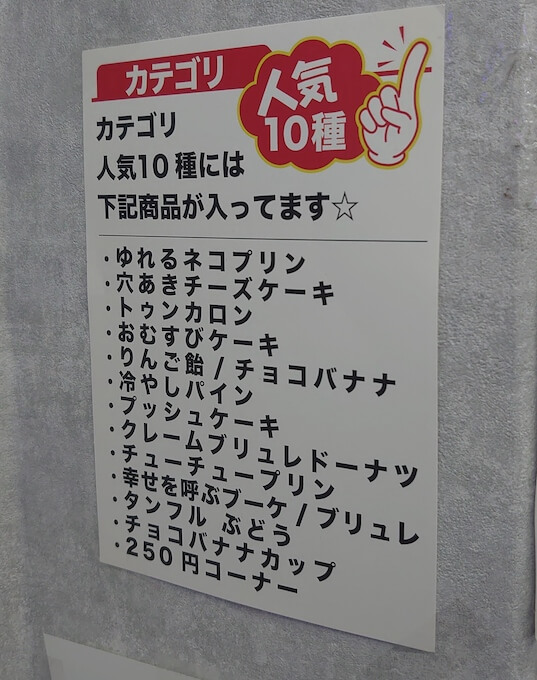 カテゴリ
人気
10種
カテゴリ
人気10種には
下記商品が入ってます☆
・ゆれるネコプリン
・穴あきチーズケーキ
・トゥンカロン
・おむすびケーキ
・りんご飴/チョコバナナ
・冷やしパイン
・プッシュケーキ
・クレームブリュレドーナツ
・チューチュープリン
・幸せを呼ぶブーケ/ブリュレ
・タンフル ぶどう
・チョコバナナカップ
・250円コーナー